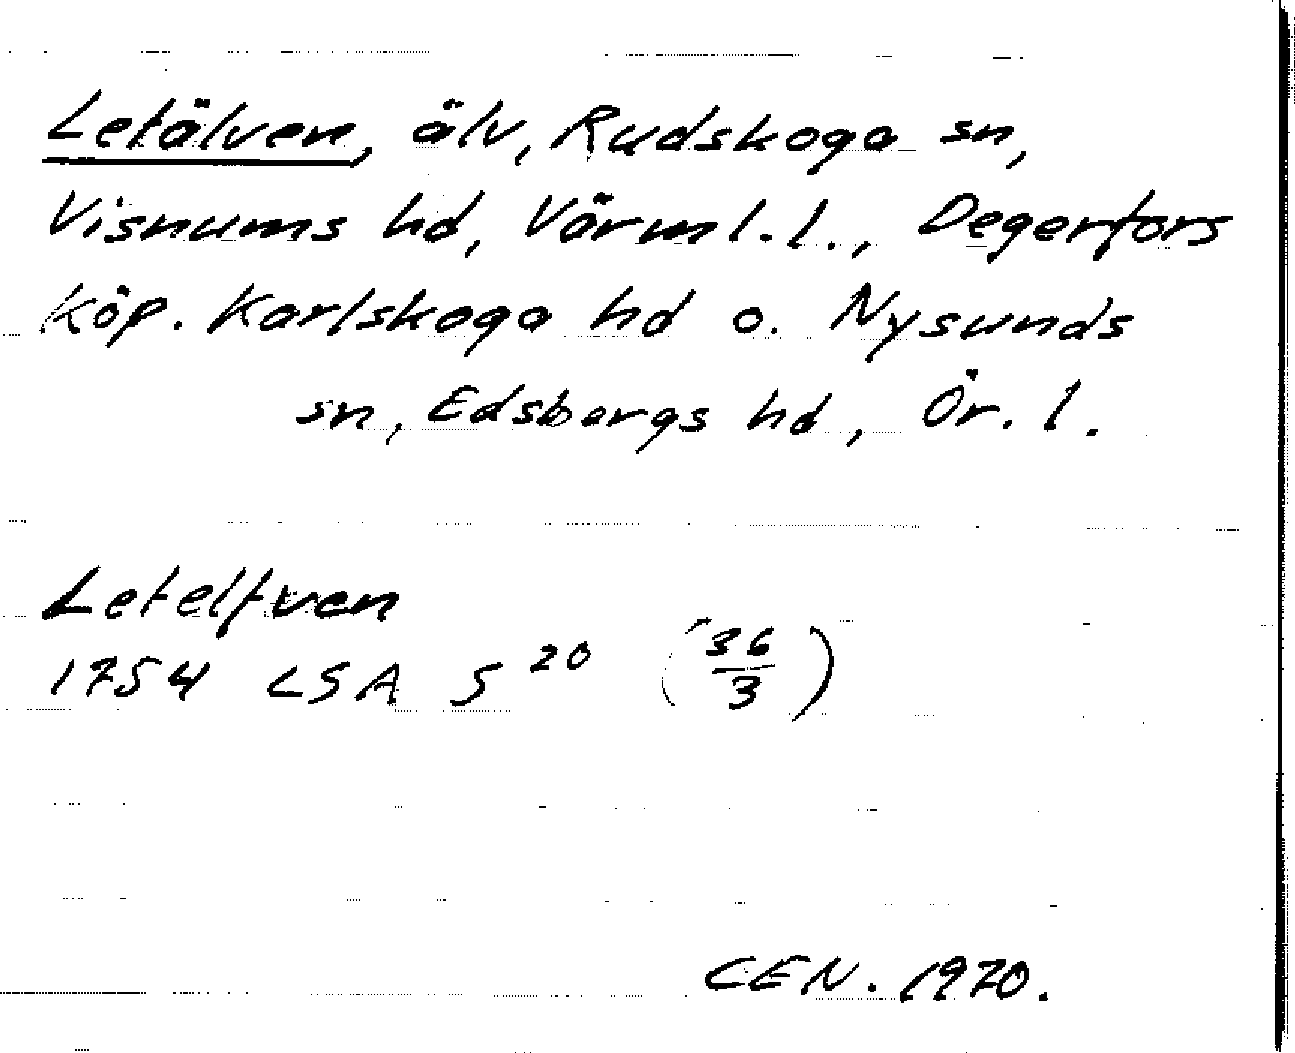 Letälven, älv, Rudskoga sn,
Visnums hd, Värml. l., Degerfors
köp. Karlskoga hd o. Nysunds
sn, Edsbergs hd, Ör. l.
Letelfven
1754 LSA S 20 (36/3)
CEN. 1970.